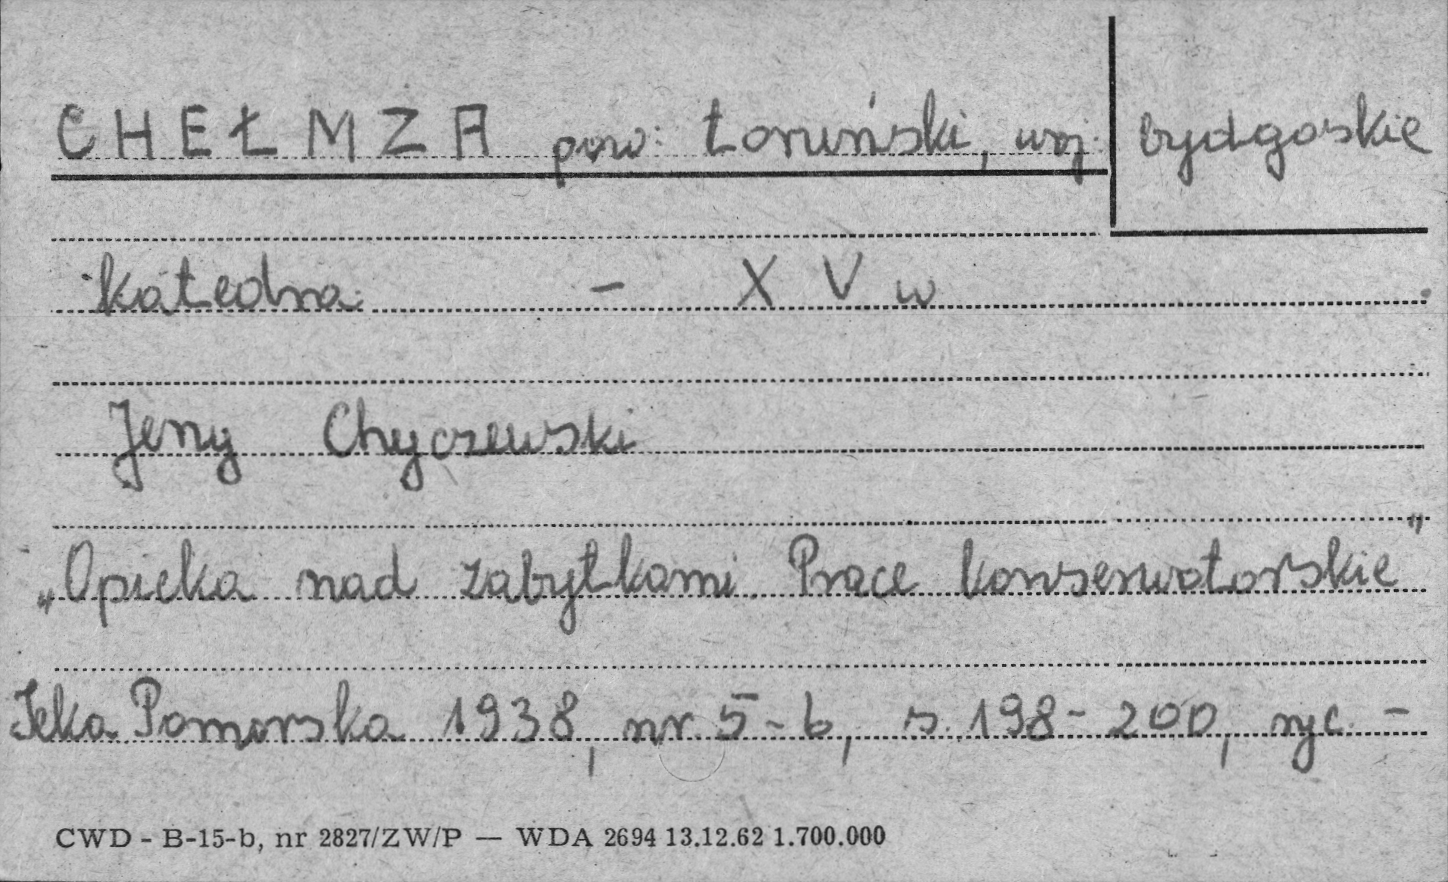 CHEŁMZA pow: toruński, woj: bydgoskie
Katedra - XV w.
Jerzy Chyczewski
„Opieka nad zabytkami. Prace konserwatorskie"
Teka Pomorska 1938, nr. 5-6, s. 198-200, ryc. -
CWD - B-15-b, nr 2827/ZW/P — WDA 2694 13.12.62 1.700.000